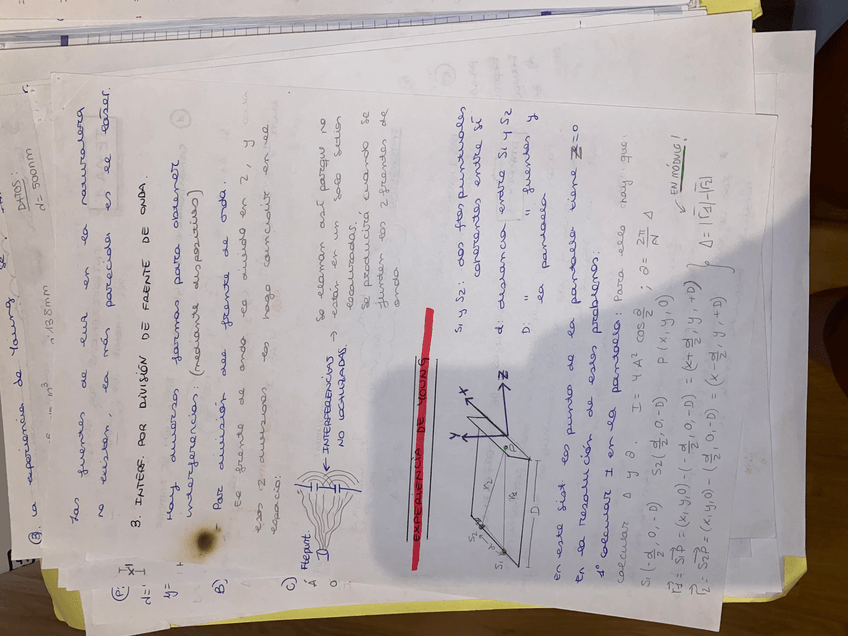 Las fuentes de luz en la naturaleza
no existen, la más parecida es el láser.
3. INTERF. POR DIVISIÓN DE FRENTE DE ONDA.
Hay diversas formas para obtener
interferencias: (mediante dispositivos)
- Por división del frente de onda.
El frente de onda lo divido en 2, y
esas 2 divisiones, las hago coincidir en el
espacio:
Ftepunt.
← INTERFERENCIAS
NO LOCALIZADAS.
→ Se llaman así porque no
están en un solo sitio
localizadas.
Se producirá cuando se
junten los 2 frentes de
onda
EXPERIENCIA DE YOUNG
S1 y S2: dos ftes puntuales
coherentes entre sí
d: distancia entre S1 y S2
D: " " fuentes y
la pantalla
S2
S1
d
r2
r1
P
D
X
Y
Z
En este sist los puntos de la pantalla tiene Z=0
En la resolución de estos problemas:
1º calcular I en la pantalla: Para ello hay que:
calcular Δ y ∂. I = 4A² cos ∂/2 ; ∂ = 2π/λ Δ
S1(-d/2, 0, -D) S2(d/2, 0, -D) P(x, y, 0)
r1 = S1P = (x, y, 0) - (-d/2, 0, -D) = (x+d/2, y, +D)
r2 = S2P = (x, y, 0) - (d/2, 0, -D) = (x-d/2, y, +D)
} Δ = |r1| - |r2|
↙ EN MÓDULO!
la experiencia de Young
DATOS:
d = 500nm
B)
C)